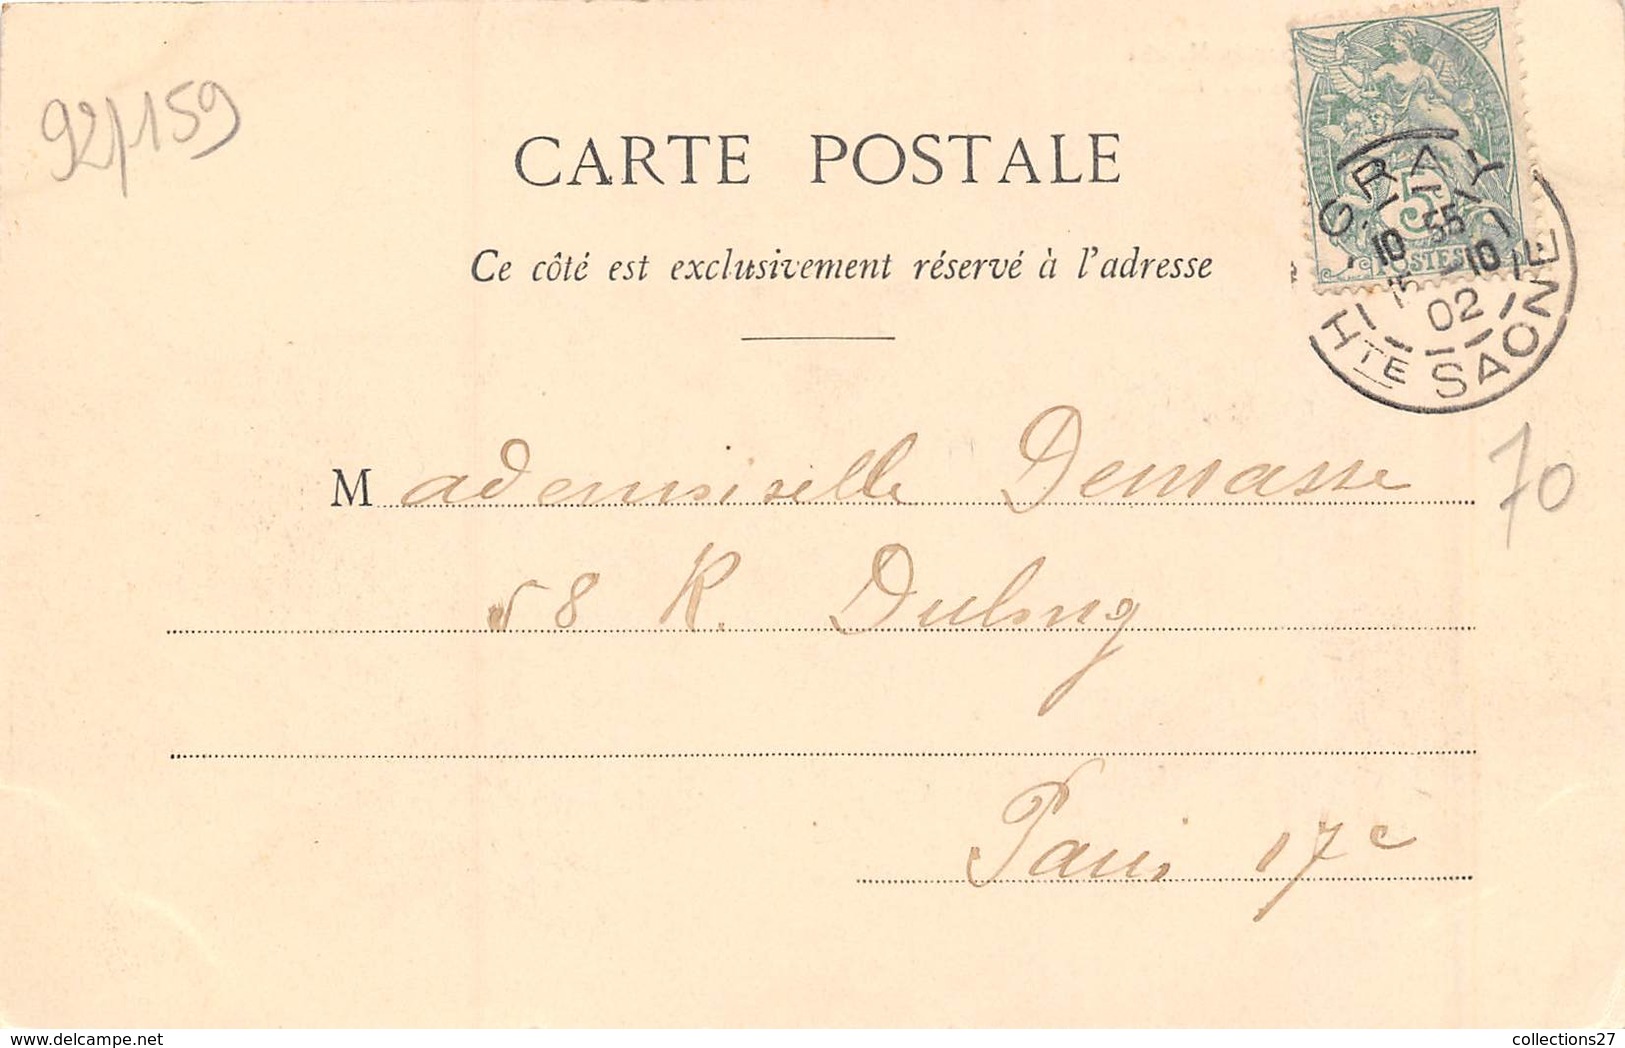 92/159
CARTE POSTALE
Ce côté est exclusivement réservé à l'adresse
5
POSTES
GRAY
10 55
5 10
02
HTE SAONE
Mademoiselle Demasse
58 R. Dulong
70
Paris 17e
collections27